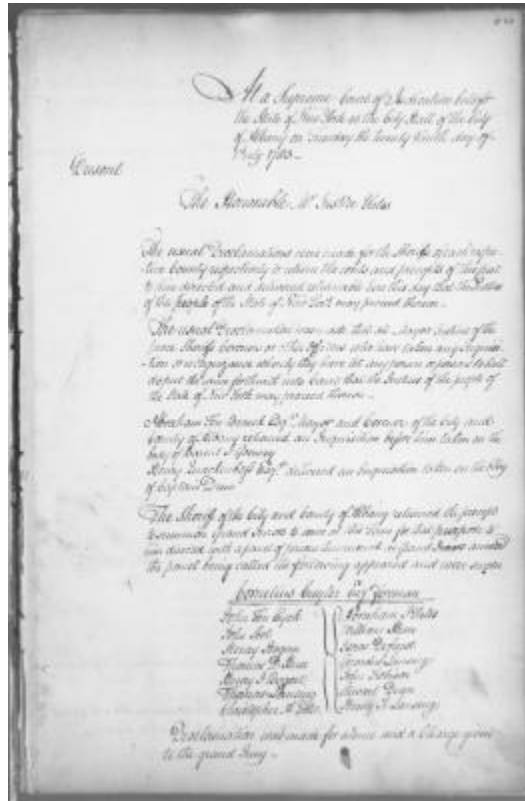 At a Supreme Court of Judicature held for
the State of New York at the City Hall of the City
of Albany on Tuesday the twenty ninth day of
July 178
Present
The Honorable Mr Justice Yates
The usual Proclamations were made for the Sheriffs of each respec-
tive County respectively to return the writs and precepts of
to him directed and delivered returnable here this day that the Justices
of the people of the State of New York may proceed thereon
The usual Proclamation was made that all Mayors Justices of the
peace Sheriffs Coroners or other Officers who have taken any Inquisi-
tion or Recognizance whereby they have let any person or persons to bail
do put the same forthwith into Court that the Justices of the people of
the State of New York may proceed thereon
Abraham Ten Broeck Esqr. Mayor and Coroner of the City and
County of Albany returned an Inquisition before him taken on the
body of
Henry Esqr. delivered an Inquisition taken on the Body
of Captain Dunn
The Sheriff of the City and County of Albany returned the precept
to summon Grand Jurors to serve at this for that purpose to
him directed with a panel of persons summoned as Grand Jurors annexed
the panel being called the following appeared and were sworn
Cornelius Cuyler Esqr. Foreman
John Ten Eyck
John
Henry
Thomas
Henry I Bogert
Thomas Lansing
Christopher A Yates
Abraham Yates
William
Isaac
Gerardus Lansingh
John
Stewart Dean
Henry R Lansingh
Proclamation was made for silence and a Charge given
to the grand Jury